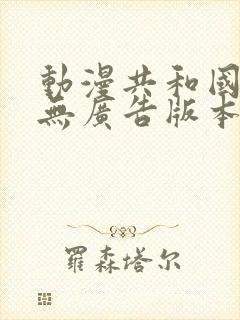 動漫共和國
無廣告版本
羅森塔尔